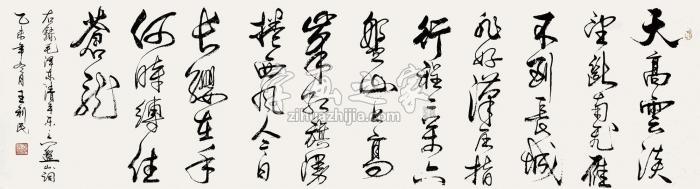 天高雲淡
望斷南飛雁
不到長城
非好漢屈指
行程二萬六
盤山上高
峯紅旗漫
捲西風今日
長纓在手
何時縛住
蒼龍
右錄毛澤東清平樬之六盤山詞
乙未年冬月王利民
字画之家
zihuazhijia.com